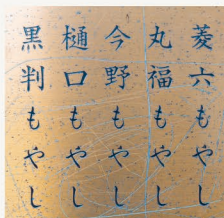 菱六もやし
丸福もやし
今野もやし
樋口もやし
黒判もやし